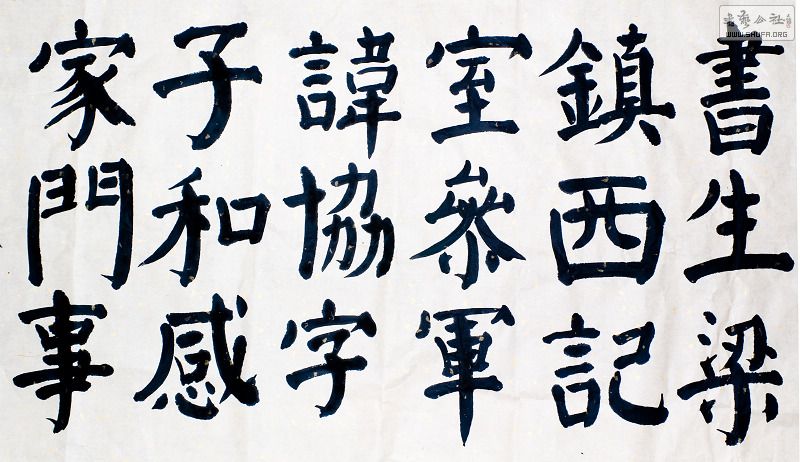 書生梁
鎮西記
室參軍
諱協字
子和感
家門事
書藝公社
WWW.SHUFA.ORG